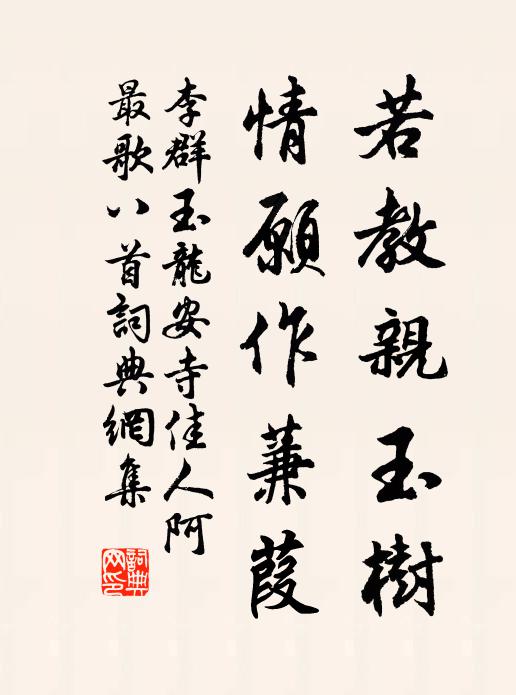 若教親玉樹
情願作蒹葭
李群玉龍安寺佳人阿
最歌八首詞典網集
詞典
网印